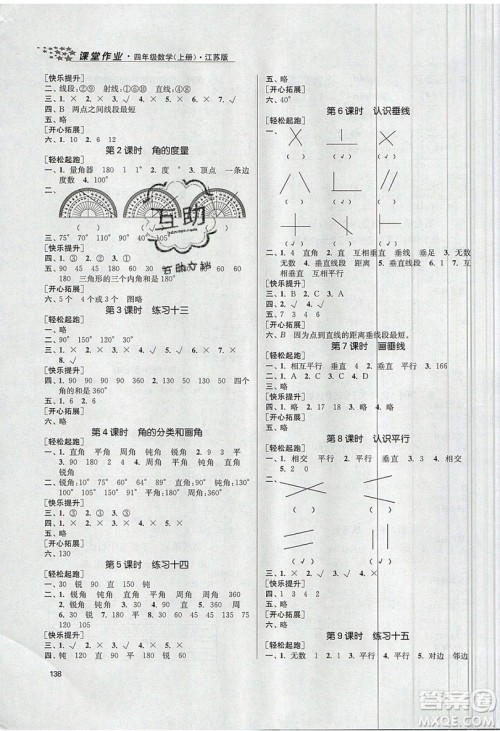 课堂作业·四年级数学(上册)·江苏版
[快乐提升]
二、线段:②⑨ 射线:①⑤ 直线:④⑧
三、1. √ 2. × 3. × 4. × 5. ×
四、B 两点之间线段最短
五、略
[开心拓展]
六、1. 10 2. 6 12
第2课时 角的度量
[轻松起跑]
一、1. 量角器 180 1 1° 2. 顶点 一条边
度数 4. 100°
二、
三、75° 70° 110°
四、1. √ 2. × 3. × 4. ×
[快乐提升]
五、90 45 45 180 30 60 90
180 三角形的三个内角和是180°
[开心拓展]
六、5个 4个 3个 图略
第3课时 练习十三
[轻松起跑]
一、略
二、略
三、1. × 2. × 3. √ 4. √ 5. × 6. × 7. ×
8. √
[快乐提升]
四、360 180 90 30 120 60 150 四个
角的和是360°
五、1. 6 2. 6
[开心拓展]
六、略
第4课时 角的分类和画角
[轻松起跑]
一、1. 直角 平角 周角 钝角 锐角
2. 180 1 2 4
二、锐角:10° 89° 75° 直角:90° 钝角:
91° 120° 175° 平角:180° 周角:360°
三、1. × 2. √ 3. √ 4. × 5. ×
四、略
[快乐提升]
五、略
[开心拓展]
六、130
第5课时 练习十四
[轻松起跑]
一、30 锐 90 直 钝
二、1. 锐角 钝角 直角 锐角 平角 钝角
2. 锐角 钝角 锐角 钝角 直角
三、1. × 2. × 3. × 4. ×
[快乐提升]
四、钝 120 直 90 平 180 锐 60
138
五、略
[开心拓展]
六、40°
第6课时 认识垂线
[轻松起跑]
一、
( ) (√) ( )
( ) (√) (√)
二、1. 4 直角 直 互相垂直 垂线 垂足 2. 无数
无数 3. 垂直线段 距离 4. 互相垂直
三、1. B 2. A 3. C
[快乐提升]
四、1. B 2. C
五、略
[开心拓展]
六、B 因为点到直线的距离垂线段最短。
第7课时 画垂线
[轻松起跑]
一、1. 相互平行 垂线 2. 平行 垂直 3. 166
二、1. A 2. C 3. A 4. D
三、略
[快乐提升]
四、1. 略 2. 17 18 3. 略 4. 略
[开心拓展]
五、略
第8课时 认识平行
[轻松起跑]
一、1. 相交 平行 2. 平行 3. 相交 平行
5. 2 0
二、
(√) ( ) (√)
( ) (√) (√)
三、1. × 2. √ 3. × 4. √
[快乐提升]
四、1. 2 3 4 2
五、略
[开心拓展]
六、略
第9课时 练习十五
[轻松起跑]
一、1. 无数 1 2. 平行 3. 平行 4. 对边 邻边
互助
互助文档
答案圈
MXQE.COM